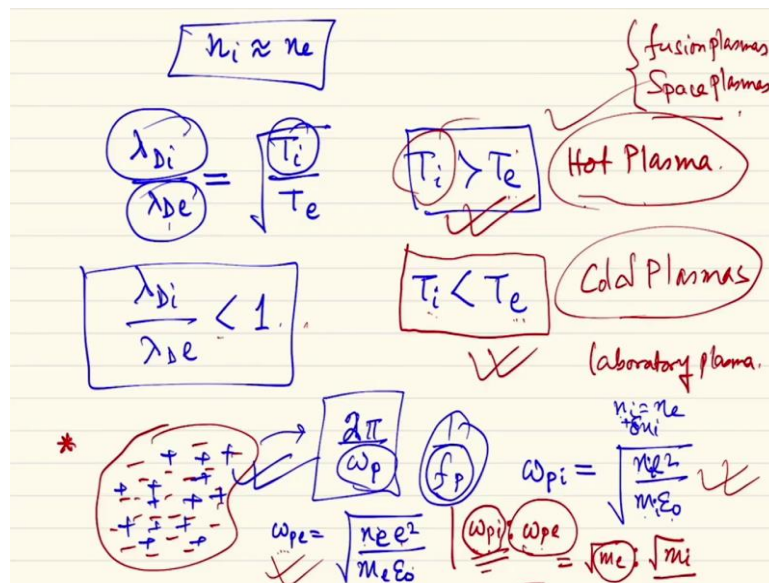 n_i ≈ n_e
{ fusion plasmas
Space plasmas
λ_Di / λ_De = √(T_i / T_e)
T_i > T_e
Hot Plasma.
λ_Di / λ_De < 1.
T_i < T_e
Cold Plasmas
laboratory plasma.
n_i = n_e
+δn_i
* 2π / ω_p
1 / f_p
ω_pi = √(n_i e² / m_i ε₀)
ω_pe = √(n_e e² / m_e ε₀)
ω_pi : ω_pe
= √m_e : √m_i